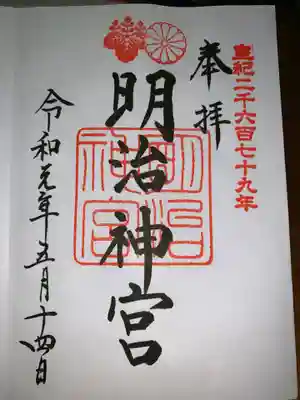 皇紀二千六百七十九年
奉拝
明治神宮
明治神宮
令和元年五月十四日